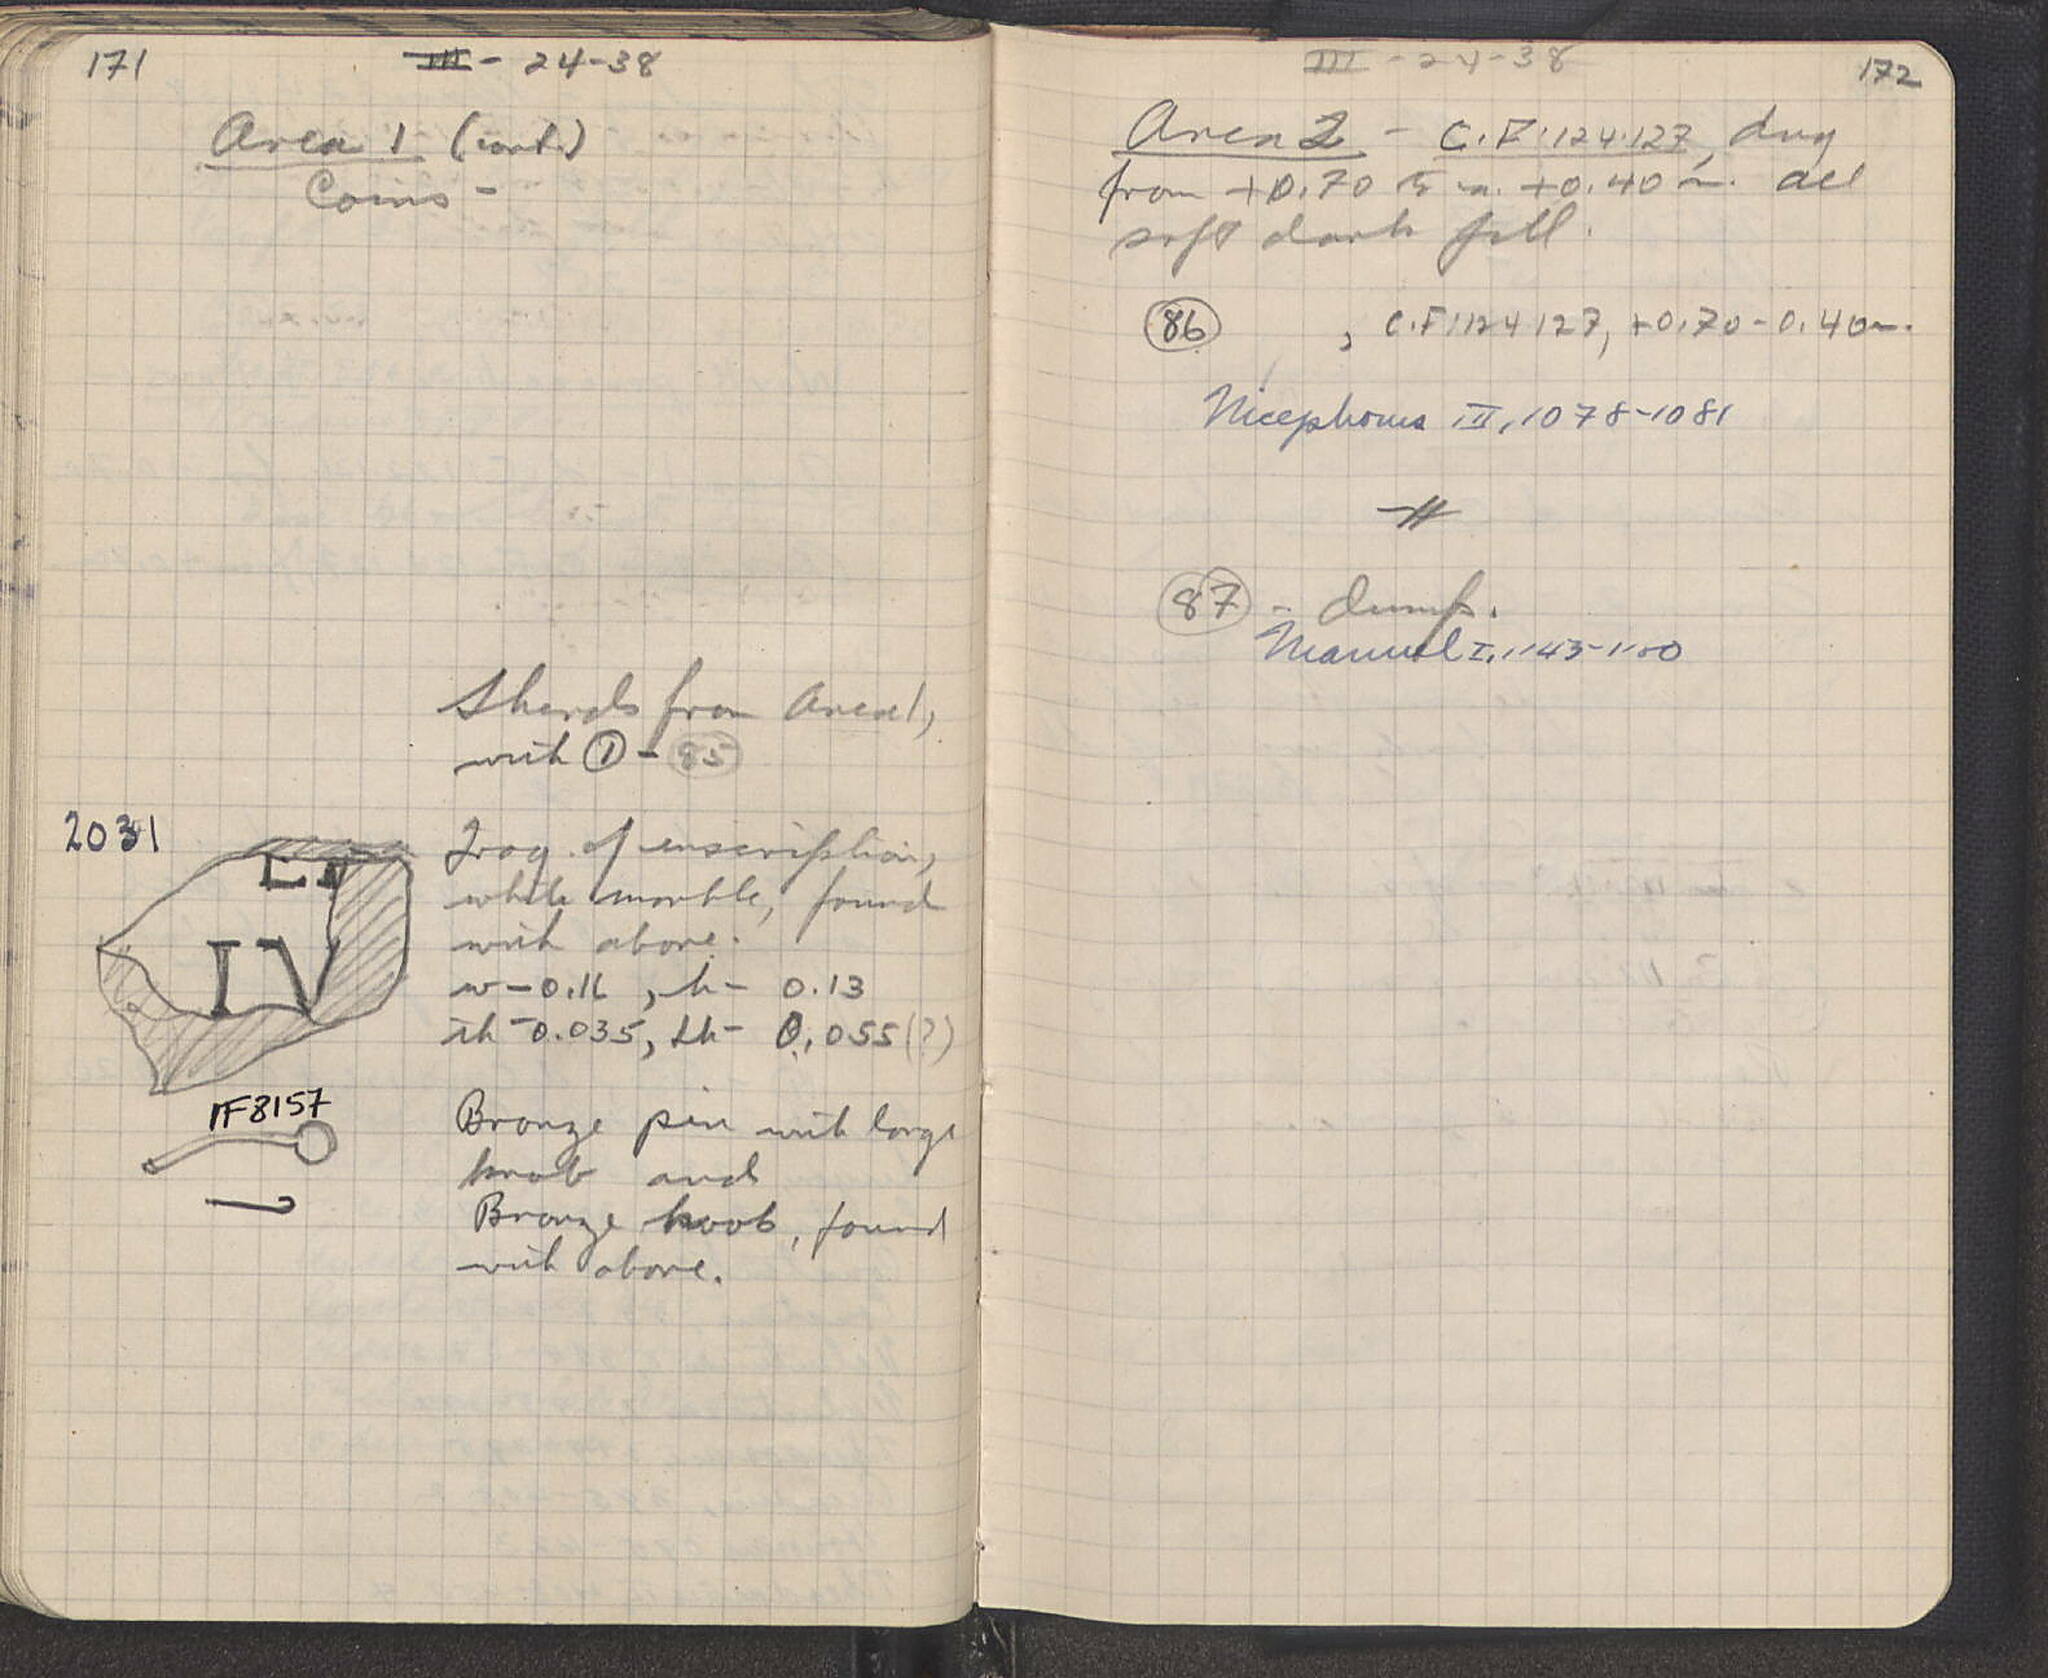 171
III - 24-38
Area 1 (cont.)
Coins -
Sherds from Area 1,
with ① - 85
2031
Frag. of inscription,
white marble, found
with above.
w - 0.16, h - 0.13
th - 0.035, Lh - 0.055 (?)
IV
IF8157
Bronze pin with large
knob and
Bronze hook, found
with above.
III - 24-38
172
Area 2 - C.F:124.127, dug
from +0.70 to +0.40 m. all
soft dark fill.
86 , C.F:124 127, +0.70 - 0.40 m.
Nicephorus III, 1078-1081
87 - dump.
Manuel I, 1143-1180